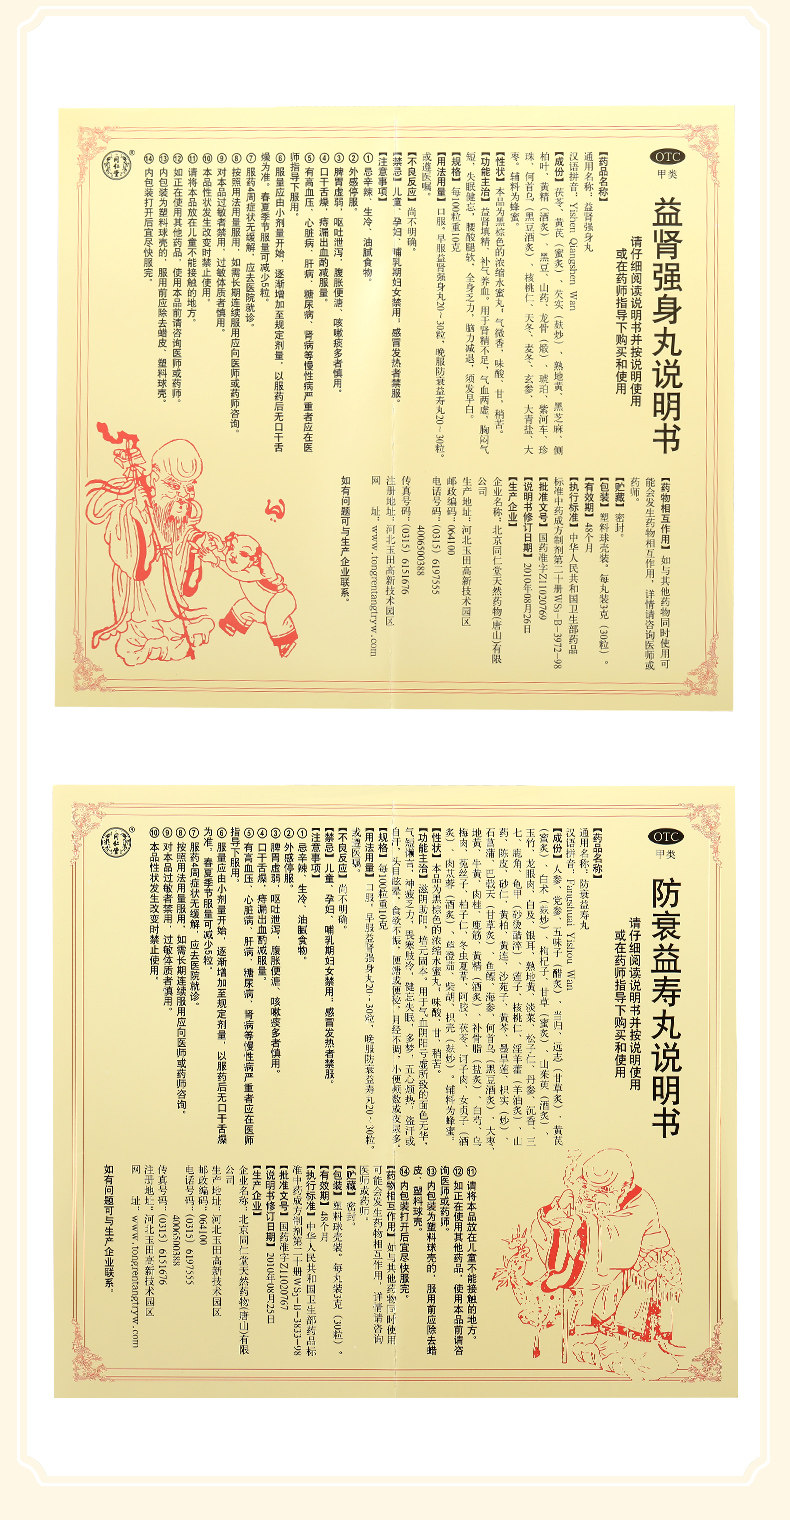 OTC
甲类
益肾强身丸说明书
请仔细阅读说明书并按说明使用
或在药师指导下购买和使用
【药品名称】
通用名称：益肾强身丸
汉语拼音：Yishen Qiangshen Wan
【成份】茯苓、黄芪（蜜炙）、芡实（麸炒）、熟地黄、黑芝麻、侧
柏叶、黄精（酒炙）、黑豆、山药、龙骨（煅）、琥珀、紫河车、珍
珠、何首乌（黑豆酒炙）、核桃仁、天冬、麦冬、玄参、大青盐、大
枣。辅料为蜂蜜。
【性状】本品为黑棕色的浓缩水蜜丸；气微香，味酸、甘，稍苦。
【功能主治】益肾填精，补气养血。用于肾精不足，气血两虚，胸闷气
短，失眠健忘，腰酸腿软，全身乏力，脑力减退，须发早白。
【规格】每100粒重10克
【用法用量】口服。早服益肾强身丸20～30粒，晚服防衰益寿丸20～30粒。
或遵医嘱。
【不良反应】尚不明确。
【禁忌】儿童、孕妇、哺乳期妇女禁用；感冒发热者禁服。
【注意事项】
①忌辛辣、生冷、油腻食物。
②外感停服。
③脾胃虚弱，呕吐泄泻，腹胀便溏、咳嗽痰多者慎用。
④口干舌燥，痔漏出血酌减服量。
⑤有高血压、心脏病、肝病、糖尿病、肾病等慢性病严重者应在医
师指导下服用。
⑥服量应由小剂量开始，逐渐增加至规定剂量，以服药后无口干舌
燥为准。春夏季节服量可减少5粒。
⑦服药4周症状无缓解，应去医院就诊。
⑧按照用法用量服用，如需长期连续服用应向医师或药师咨询。
⑨对本品过敏者禁用，过敏体质者慎用。
⑩本品性状发生改变时禁止使用。
⑪请将本品放在儿童不能接触的地方。
⑫如正在使用其他药品，使用本品前请咨询医师或药师。
⑬内包装为塑料球壳的，服用前应除去蜡皮、塑料球壳。
⑭内包装打开后宜尽快服完。
同仁堂
®
【药物相互作用】如与其他药物同时使用可
能会发生药物相互作用，详情请咨询医师或
药师。
【贮藏】密封。
【包装】塑料球壳装。每丸装3克（30粒）。
【有效期】48个月
【执行标准】中华人民共和国卫生部药品
标准中药成方制剂第二十册WS3-B-3972-98
【批准文号】国药准字Z11020769
【说明书修订日期】2010年08月26日
【生产企业】
企业名称：北京同仁堂天然药物(唐山)有限
公司
生产地址：河北玉田高新技术园区
邮政编码：064100
电话号码：(0315) 6197555
4006500388
传真号码：(0315) 6151676
注册地址：河北玉田高新技术园区
网 址：www.tongrentangtryw.com
如有问题可与生产企业联系。
OTC
甲类
防衰益寿丸说明书
请仔细阅读说明书并按说明使用
或在药师指导下购买和使用
【药品名称】
通用名称：防衰益寿丸
汉语拼音：Fangshuai Yishou Wan
【成份】人参、党参、五味子（醋炙）、当归、远志（甘草炙）、黄芪
（蜜炙）、白术（麸炒）、枸杞子、甘草（蜜炙）、山茱萸（酒炙）、
玉竹、龙眼肉、白及、银耳、熟地黄、淡菜、松子仁、丹参、沉香、三
七、鹿角、龟甲（砂烫醋淬）、莲子、核桃仁、淫羊藿（羊油炙）、山
药、陈皮、砂仁、黄柏、黄连、沙苑子、黄芩、墨旱莲、枳实（炒）、
石菖蒲、巴戟天（甘草炙）、鱼鳔、海参、何首乌（黑豆酒炙）、大枣、
地黄、牛黄、肉桂、鹿筋、黄精（酒炙）、补骨脂（盐炙）、白芍、乌
梅肉、菟丝子、柏子仁、冬虫夏草、阿胶、茯苓、诃子肉、女贞子（酒
炙）、肉苁蓉（酒炙）、荜澄茄、柴胡、枳壳（麸炒）。辅料为蜂蜜。
【性状】本品为黑棕色的浓缩水蜜丸；味酸、甘，稍苦。
【功能主治】滋阴助阳，培元固本。用于气血阴阳亏虚所致的面色无华，
气短懒言，神疲乏力，畏寒肢冷，健忘失眠，多梦，五心烦热，盗汗或
自汗，头目眩晕，食欲不振，便溏或便秘，月经不调，小便频数或夜尿多。
【规格】每100粒重10克
【用法用量】口服，早服益肾强身丸20～30粒，晚服防衰益寿丸20～30粒。
或遵医嘱。
【不良反应】尚不明确。
【禁忌】儿童、孕妇、哺乳期妇女禁用；感冒发热者禁服。
【注意事项】
①忌辛辣、生冷、油腻食物。
②外感停服。
③脾胃虚弱，呕吐泄泻，腹胀便溏、咳嗽痰多者慎用。
④口干舌燥，痔漏出血酌减服量。
⑤有高血压、心脏病、肝病、糖尿病、肾病等慢性病严重者应在医师
指导下服用。
⑥服量应由小剂量开始，逐渐增加至规定剂量，以服药后无口干舌燥
为准，春夏季节服量可减少5粒。
⑦服药4周症状无缓解，应去医院就诊。
⑧按照用法用量服用，如需长期连续服用应向医师或药师咨询。
⑨对本品过敏者禁用，过敏体质者慎用。
⑩本品性状发生改变时禁止使用。
同仁堂
®
⑪请将本品放在儿童不能接触的地方。
⑫如正在使用其他药品，使用本品前请咨
询医师或药师。
⑬内包装为塑料球壳的，服用前应除去蜡
皮、塑料球壳。
⑭内包装打开后宜尽快服完。
【药物相互作用】如与其他药物同时使用
可能会发生药物相互作用，详情请咨询
医师或药师。
【贮藏】密封。
【包装】塑料球壳装。每丸装3克（30粒）。
【有效期】48个月
【执行标准】中华人民共和国卫生部药品标
准中药成方制剂第二十册WS3-B-3833-98
【批准文号】国药准字Z11020767
【说明书修订日期】2010年08月25日
【生产企业】
企业名称：北京同仁堂天然药物(唐山)有限
公司
生产地址：河北玉田高新技术园区
邮政编码：064100
电话号码：(0315) 6197555
4006500388
传真号码：(0315) 6151676
注册地址：河北玉田高新技术园区
网 址：www.tongrentangtryw.com
如有问题可与生产企业联系。